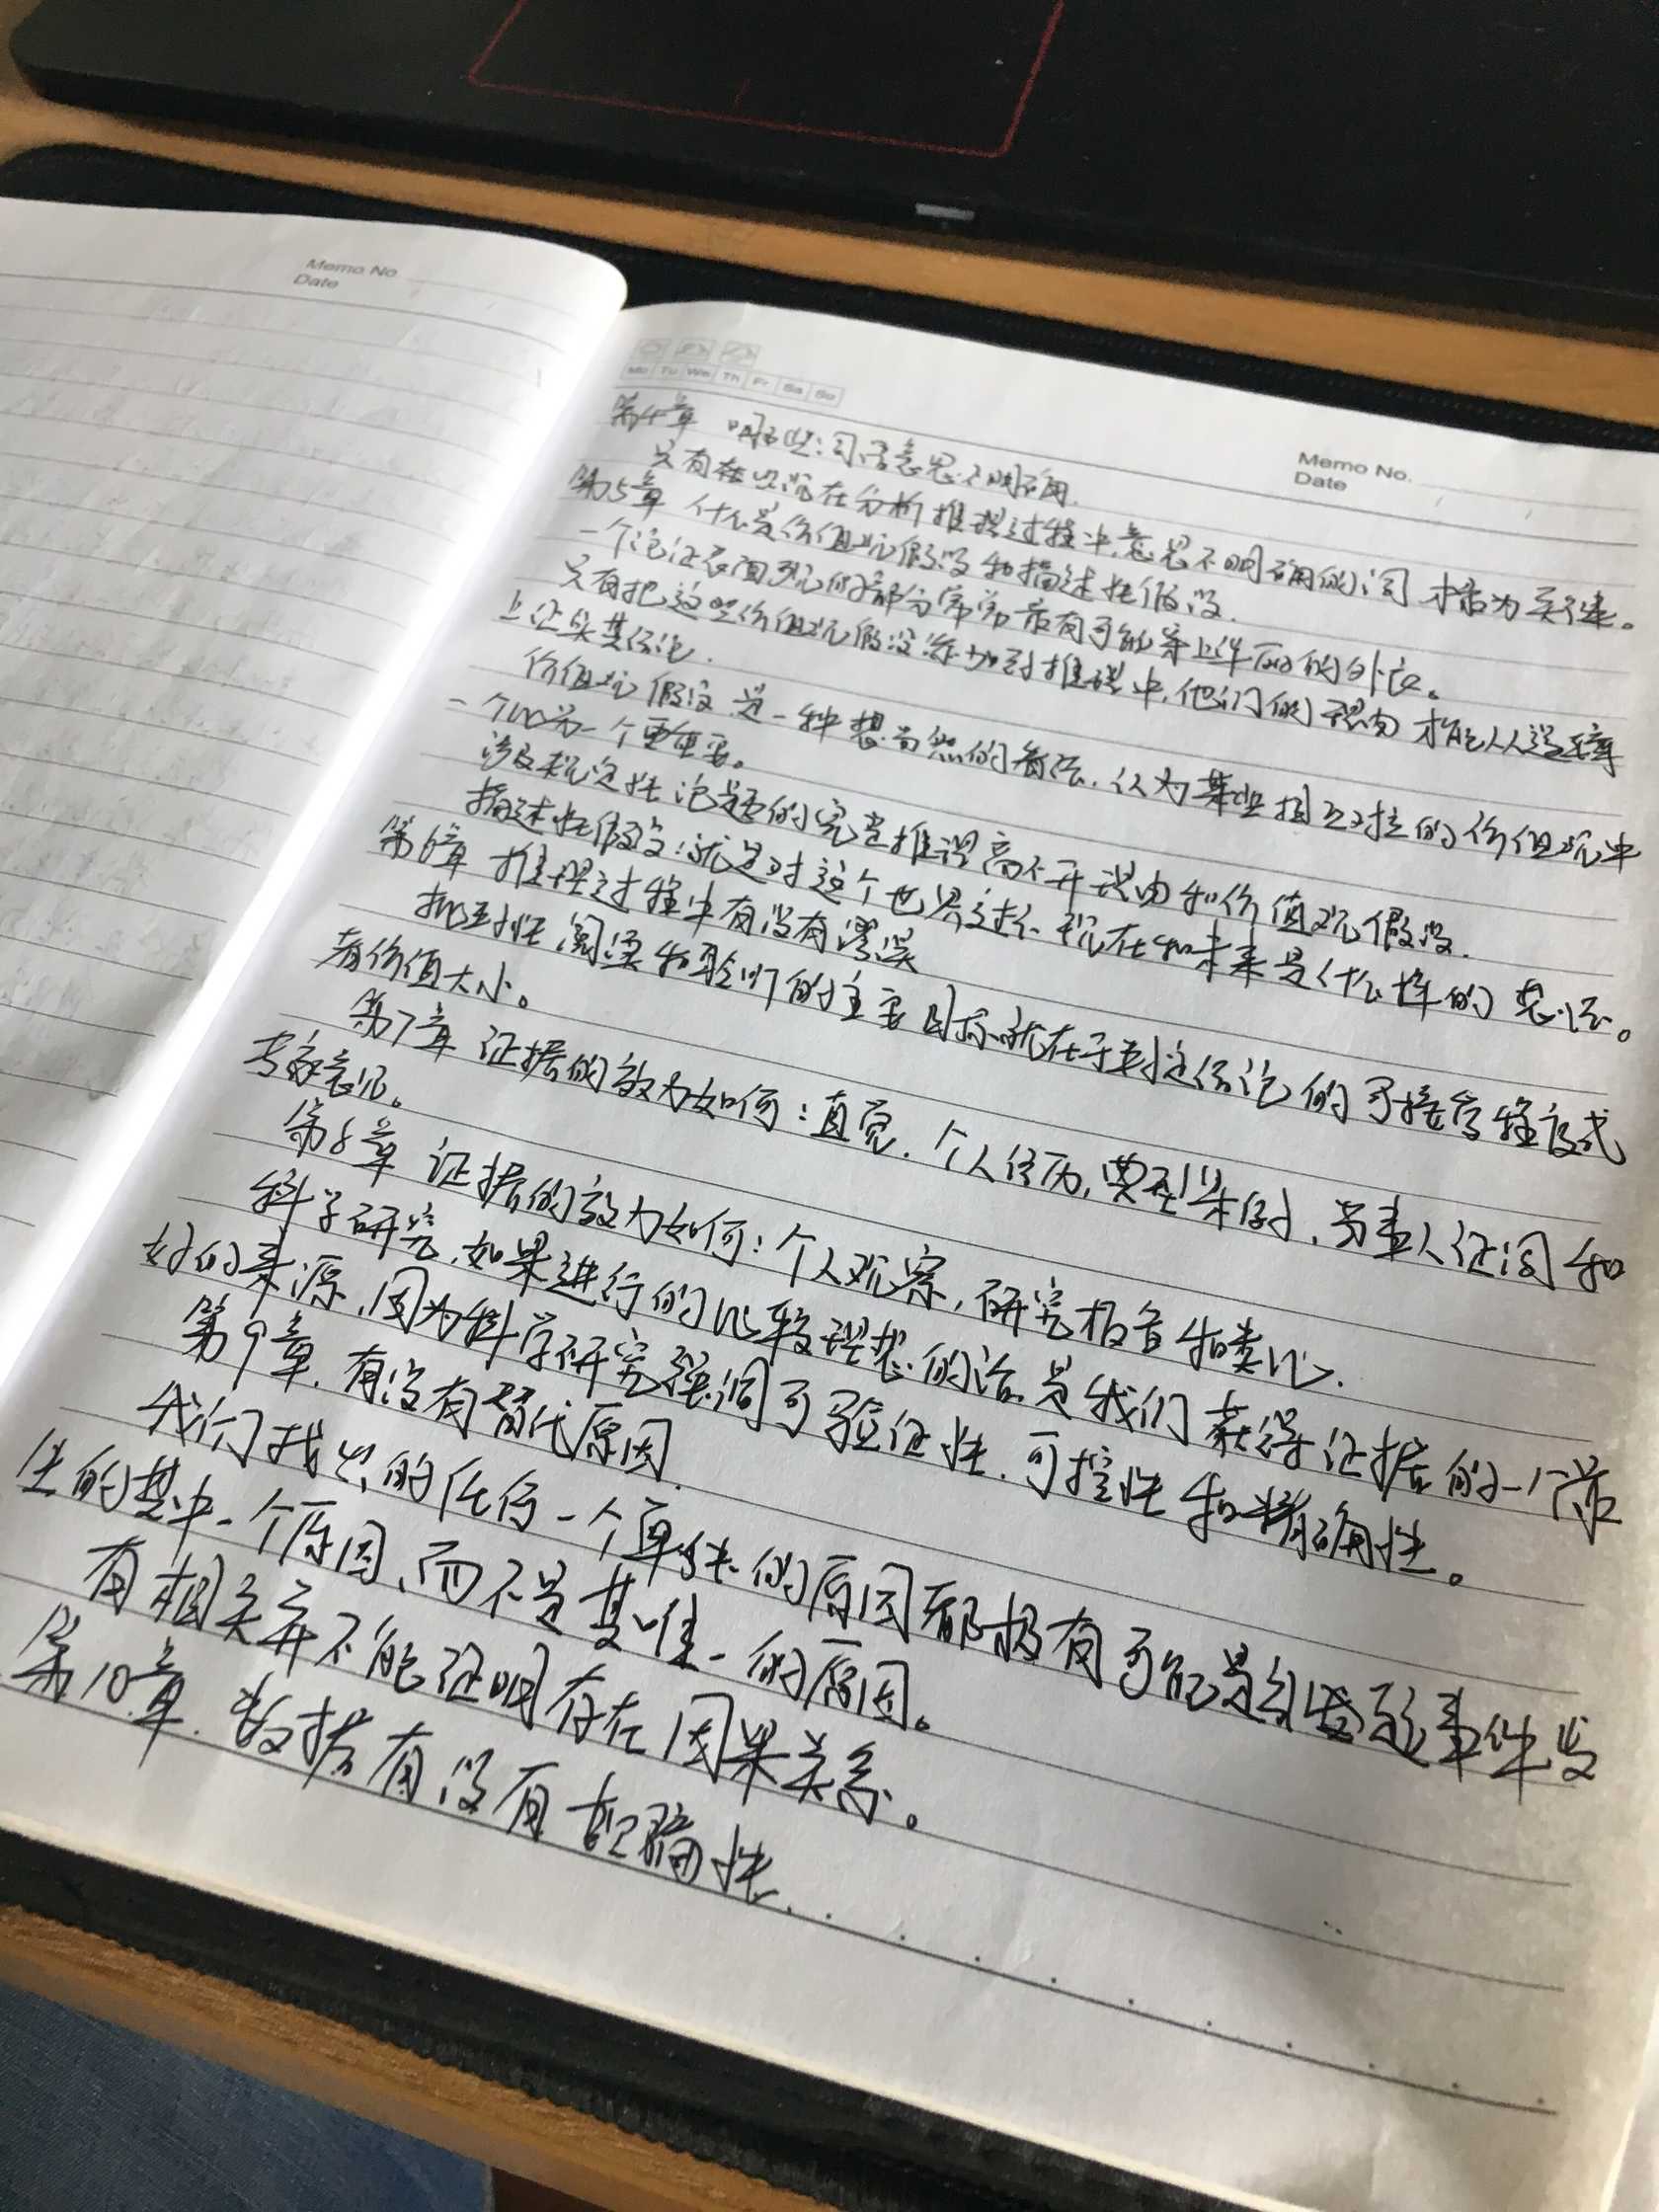 Memo No
Date
Mo Tu We Th Fr Sa Su
Memo No.
Date
第4章 哪些词语意思不明确.
只有在出现在分析推理过程中,意思不明确的词 才最为关键。
第5章 什么是价值观假设和描述性假设.
一个论证表面可见的部分常常最有可能穿上华丽的外衣。
只有把这些价值观假设添加到推理中,他们的理由 才能从逻辑
上证实其结论.
价值观假设 是一种想当然的看法.认为某些相互对立的价值观中
一个比另一个更重要。
涉及规定性论题的完整推理离不开理由和价值观假设.
描述性假设:就是对这个世界过去、现在和未来是什么样的 想法。
第6章 推理过程中有没有谬误
批判性阅读和聆听的主要目标就在于判定结论的可接受程度或
者价值大小。
第7章 证据的效力如何:直觉.个人经历,典型案例,当事人证词和
专家意见。
第8章 证据的效力如何:个人观察,研究报告和类比.
科学研究,如果进行的比较理想的话.是我们获得证据的一个最
好的来源,因为科学研究强调可验证性.可控性和精确性。
第9章.有没有替代原因.
我们找出的任何一个单独的原因都极有可能是引发这事件发
生的其中一个原因、而不是其唯一的原因。
有相关并不能证明存在因果关系。
第10章.数据有没有欺骗性.